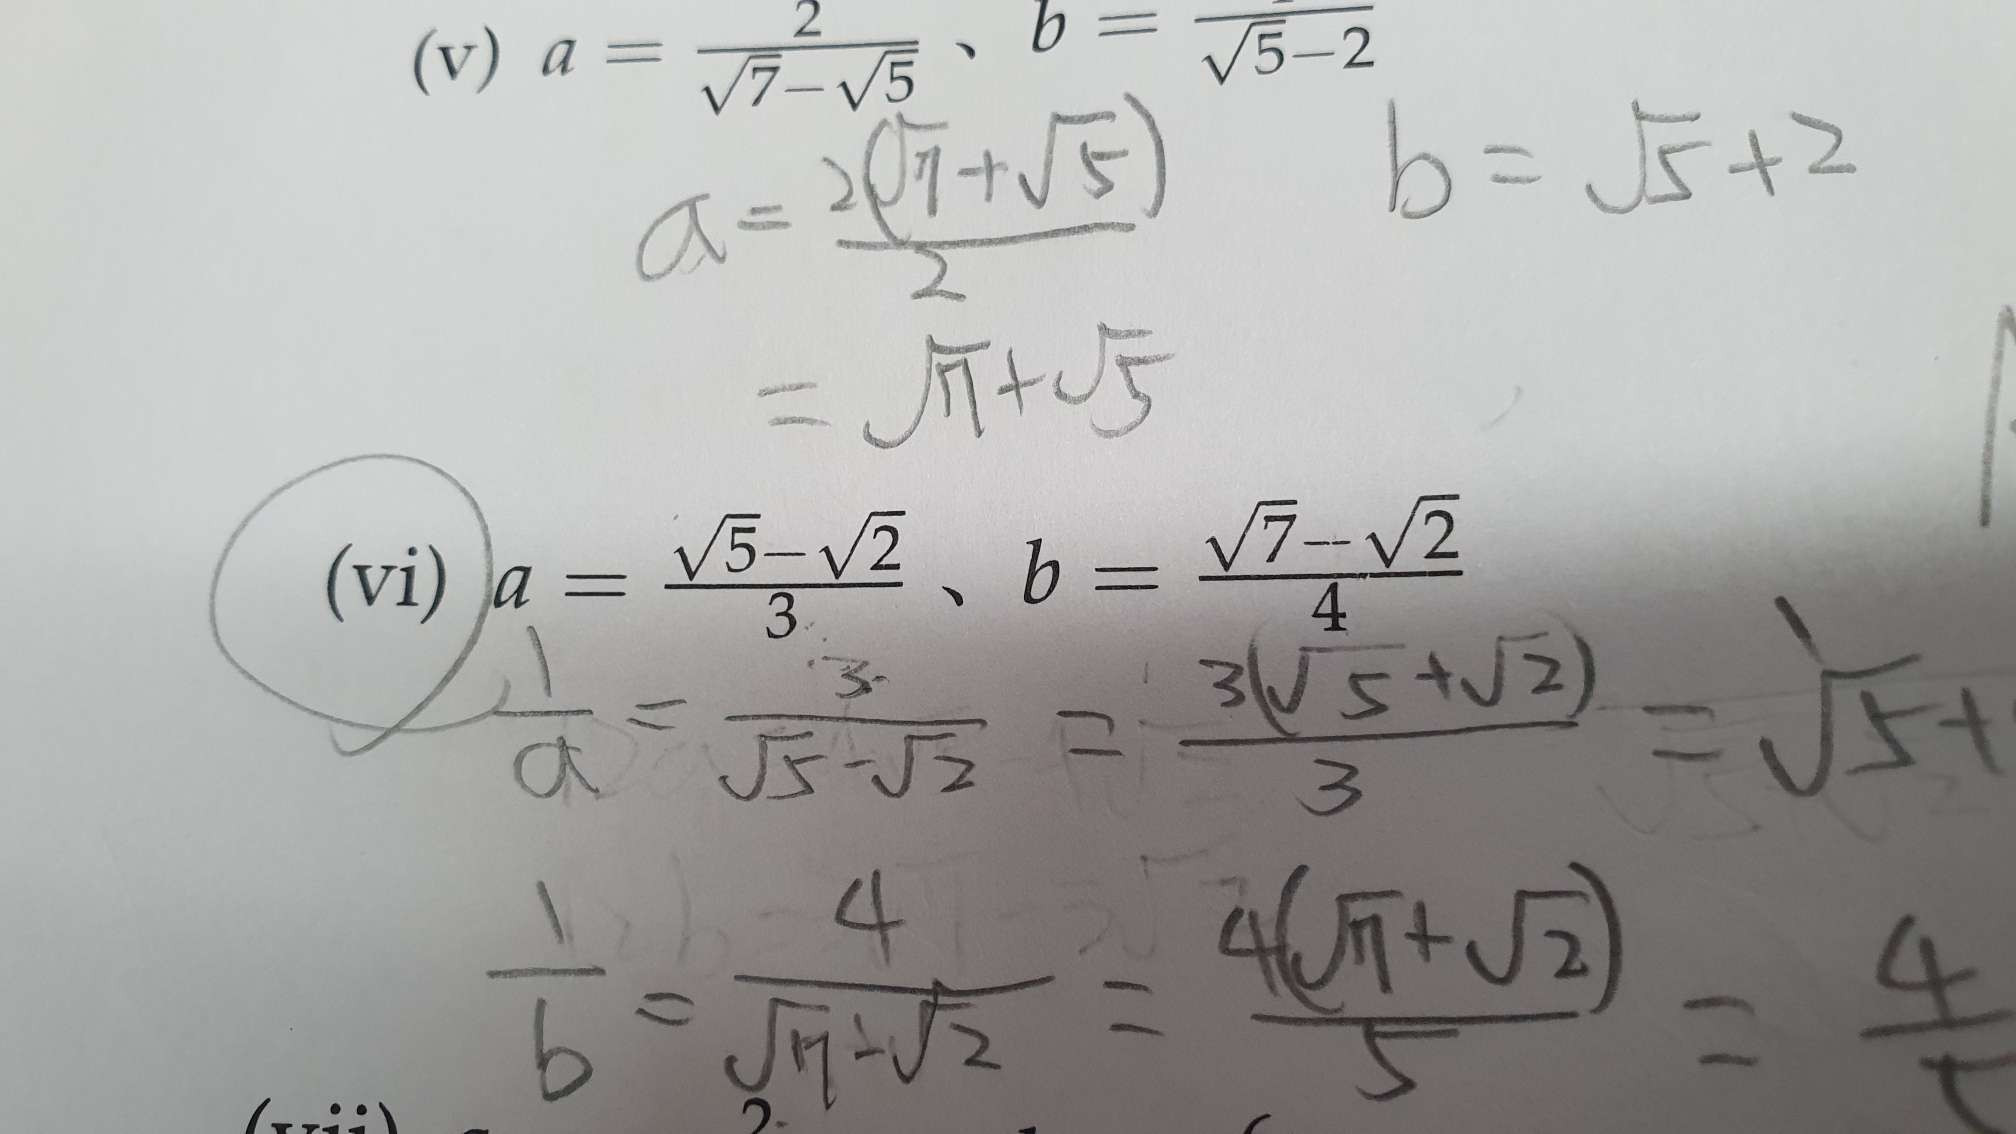 (v) a = 2/(√7−√5) 、 b = /(√5−2)
a = 2(√7+√5)/2   b = √5+2
= √7+√5
(vi) a = (√5−√2)/3 、 b = (√7−√2)/4
1/a = 3/(√5−√2) = 3(√5+√2)/3 = √5+
1/b = 4/(√7−√2) = 4(√7+√2)/5 = 4/5
(vii)